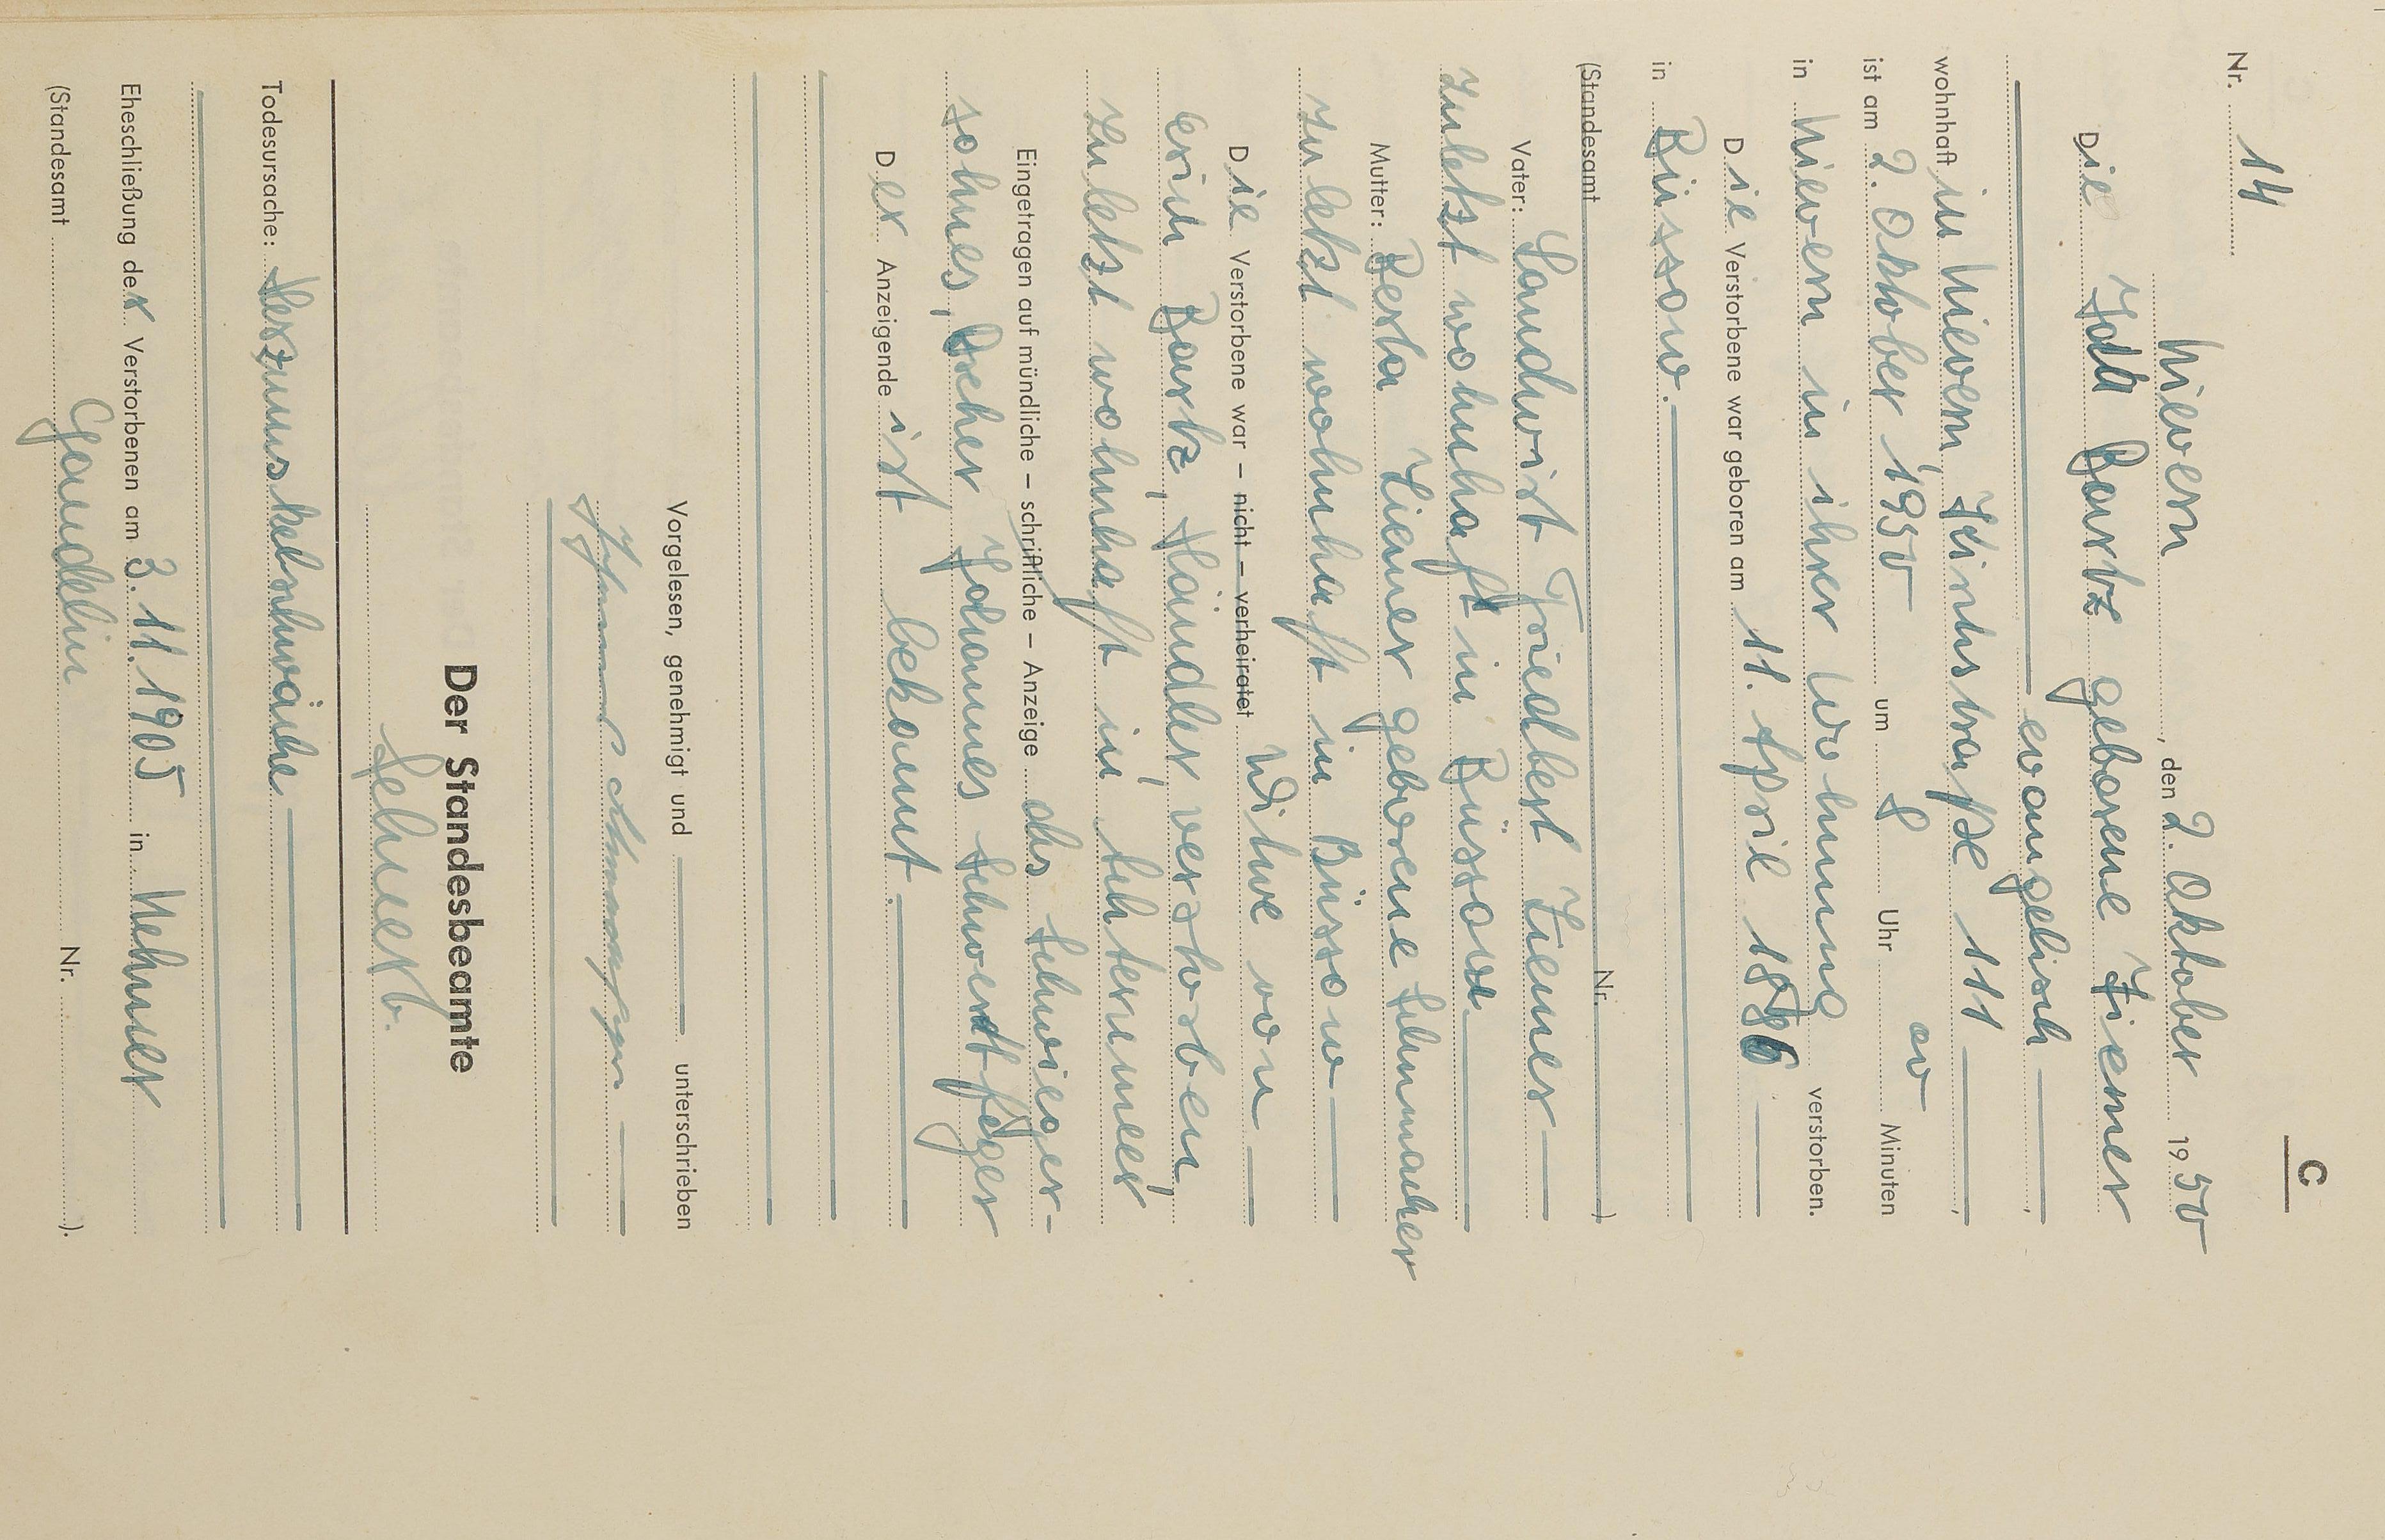 C
Nr. 14
Nievern, den 2. Oktober 1950
Die Ida Bartz geborene Ziemer
evangelisch
wohnhaft in Nievern, Kirchstraße 111
ist am 2. Oktober 1950 um 8 Uhr Minuten
in Nievern in ihrer Wohnung verstorben.
Die Verstorbene war geboren am 11. April 1886
in Büssow.
(Standesamt Nr. )
Vater: Landwirt Friedbert Ziemer
zuletzt wohnhaft in Büssow
Mutter: Berta Ziemer geborene Schumacher
zuletzt wohnhaft in Büssow
Die Verstorbene war – nicht – verheiratet Witwe von
Erich Bartz, Händler, verstorben,
zuletzt wohnhaft in
Eingetragen auf mündliche – schriftliche – Anzeige des Schwieger-
sohnes, Dreher Johannes Schwertfeger
Der Anzeigende ist bekannt.
Vorgelesen, genehmigt und unterschrieben
Der Standesbeamte
Todesursache: Herzmuskelschwäche
Eheschließung der Verstorbenen am 3. 11. 1905 in
(Standesamt Nr. ).